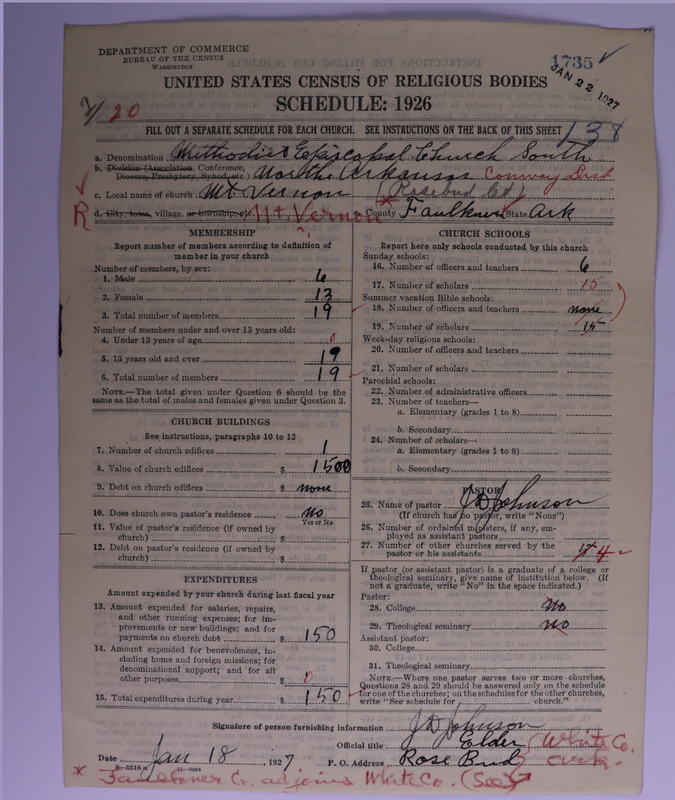 DEPARTMENT OF COMMERCE
BUREAU OF THE CENSUS
WASHINGTON
1735
JAN 22 1927
UNITED STATES CENSUS OF RELIGIOUS BODIES
SCHEDULE: 1926
7/20
FILL OUT A SEPARATE SCHEDULE FOR EACH CHURCH. SEE INSTRUCTIONS ON THE BACK OF THIS SHEET
138
a. Denomination Methodist Episcopal Church South
b. Division (Association, Conference, Diocese, Presbytery, Synod, etc.) North Arkansas Conway Dist
c. Local name of church Mt. Vernon (Rosebud Ct)
R
d. City, town, village, or township, etc. Mt. Vernon * County Faulkner State Ark
MEMBERSHIP
Report number of members according to definition of
member in your church
Number of members, by sex:
1. Male 6
2. Female 13
3. Total number of members 19
Number of members under and over 13 years old:
4. Under 13 years of age 0
5. 13 years old and over 19
6. Total number of members 19
NOTE.—The total given under Question 6 should be the
same as the total of males and females given under Question 3.
CHURCH BUILDINGS
See instructions, paragraphs 10 to 12
7. Number of church edifices 1
8. Value of church edifices $ 1500
9. Debt on church edifices $ none
10. Does church own pastor's residence no
Yes or No
11. Value of pastor's residence (if owned by
church) $
12. Debt on pastor's residence (if owned by
church) $
EXPENDITURES
Amount expended by your church during last fiscal year
13. Amount expended for salaries, repairs,
and other running expenses; for im-
provements or new buildings; and for
payments on church debt $ 150
14. Amount expended for benevolences, in-
cluding home and foreign missions; for
denominational support; and for all
other purposes $ 0
15. Total expenditures during year $ 150
CHURCH SCHOOLS
Report here only schools conducted by this church
Sunday schools:
16. Number of officers and teachers 6
17. Number of scholars 15
Summer vacation Bible schools:
18. Number of officers and teachers none
19. Number of scholars 15
Week-day religious schools:
20. Number of officers and teachers
21. Number of scholars
Parochial schools:
22. Number of administrative officers
23. Number of teachers—
a. Elementary (grades 1 to 8)
b. Secondary
24. Number of scholars—
a. Elementary (grades 1 to 8)
b. Secondary
PASTOR
25. Name of pastor J D Johnson
(If church has no pastor, write "None")
26. Number of ordained ministers, if any, em-
ployed as assistant pastors
27. Number of other churches served by the
pastor or his assistants 4
If pastor (or assistant pastor) is a graduate of a college or
theological seminary, give name of institution below. (If
not a graduate, write "No" in the space indicated.)
Pastor:
28. College No
29. Theological seminary no
Assistant pastor:
30. College
31. Theological seminary
NOTE.—Where one pastor serves two or more churches,
Questions 28 and 29 should be answered only on the schedule
for one of the churches; on the schedules for the other churches,
write "See schedule for church."
Signature of person furnishing information J D Johnson
Official title Elder
Date Jan 18, 1927 P. O. Address Rose Bud (White Co. Ark.
11—9064
* Faulkner Co. adjoins White Co. (See)